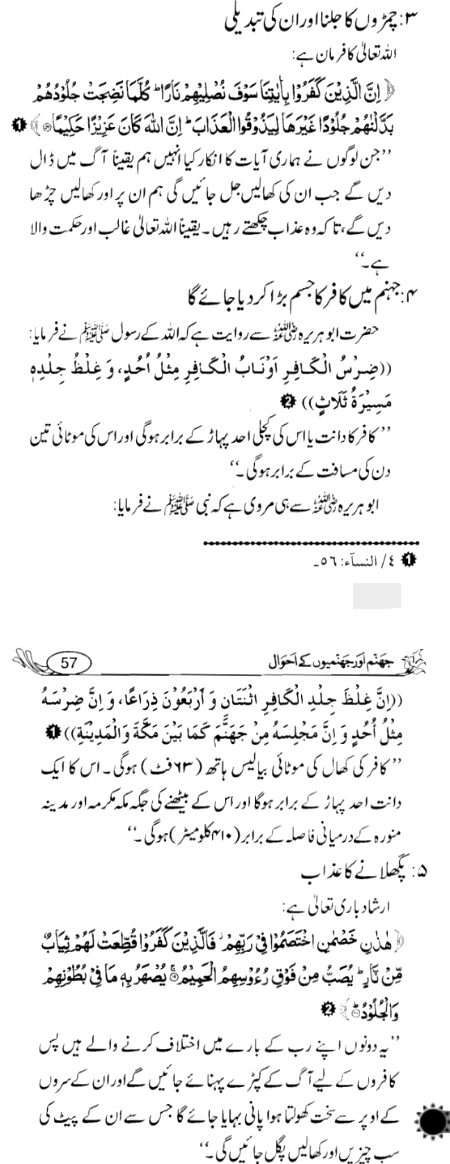 ۳: چمڑوں کا جلنا اور ان کی تبدیلی
اللہ تعالیٰ کا فرمان ہے:
﴿ اِنَّ الَّذِيْنَ كَفَرُوْا بِاٰيٰتِنَا سَوْفَ نُصْلِيْهِمْ نَارًا ؕ كُلَّمَا نَضِجَتْ جُلُوْدُهُمْ
بَدَّلْنٰهُمْ جُلُوْدًا غَيْرَهَا لِيَذُوْقُوا الْعَذَابَ ؕ اِنَّ اللّٰهَ كَانَ عَزِيْزًا حَكِيْمًا ﴾ ❶
’’جن لوگوں نے ہماری آیات کا انکار کیا انہیں ہم یقیناً آگ میں ڈال
دیں گے جب ان کی کھالیں جل جائیں گی ہم ان پر اور کھالیں چڑھا
دیں گے، تاکہ وہ عذاب چکھتے رہیں۔ یقیناً اللہ تعالیٰ غالب اور حکمت والا
ہے۔‘‘
۴: جہنم میں کافر کا جسم بڑا کر دیا جائے گا
حضرت ابو ہریرہ رضی اللہ عنہ سے روایت ہے کہ اللہ کے رسول ﷺ نے فرمایا:
((ضِرْسُ الْكَافِرِ اَوْنَابُ الْكَافِرِ مِثْلُ اُحُدٍ، وَ غِلَظُ جِلْدِهٖ
مَسِيْرَةُ ثَلَاثٍ)) ❷
’’کافر کا دانت یا اس کی کچلی احد پہاڑ کے برابر ہوگی اور اس کی موٹائی تین
دن کی مسافت کے برابر ہوگی۔‘‘
ابو ہریرہ رضی اللہ عنہ سے ہی مروی ہے کہ نبی ﷺ نے فرمایا:
❶ ٤/ النسآء: ٥٦۔
جہنم اور جہنمیوں کے احوال 57
((اِنَّ غِلَظَ جِلْدِ الْكَافِرِ اثْنَتَانِ وَ اَرْبَعُوْنَ ذِرَاعًا، وَ اِنَّ ضِرْسَهٗ
مِثْلُ اُحُدٍ وَ اِنَّ مَجْلِسَهٗ مِنْ جَهَنَّمَ كَمَا بَيْنَ مَكَّةَ وَالْمَدِيْنَةِ)) ❶
’’کافر کی کھال کی موٹائی بیالیس ہاتھ (۶۳ فٹ) ہوگی۔ اس کا ایک
دانت احد پہاڑ کے برابر ہوگا اور اس کے بیٹھنے کی جگہ مکہ مکرمہ اور مدینہ
منورہ کے درمیانی فاصلہ کے برابر (۴۱۰ کلومیٹر) ہوگی۔‘‘
۵: پگھلانے کا عذاب
ارشاد باری تعالیٰ ہے:
﴿ هٰذٰنِ خَصْمٰنِ اخْتَصَمُوْا فِيْ رَبِّهِمْ ۫ فَالَّذِيْنَ كَفَرُوْا قُطِّعَتْ لَهُمْ ثِيَابٌ
مِّنْ نَّارٍ ؕ يُصَبُّ مِنْ فَوْقِ رُءُوْسِهِمُ الْحَمِيْمُ ۚ يُصْهَرُ بِهٖ مَا فِيْ بُطُوْنِهِمْ
وَالْجُلُوْدُ ؕ ﴾ ❷
’’یہ دونوں اپنے رب کے بارے میں اختلاف کرنے والے ہیں پس
کافروں کے لیے آگ کے کپڑے پہنائے جائیں گے اور ان کے سروں
کے اوپر سے سخت کھولتا ہوا پانی بہایا جائے گا جس سے ان کے پیٹ کی
سب چیزیں اور کھالیں پگل جائیں گی۔‘‘